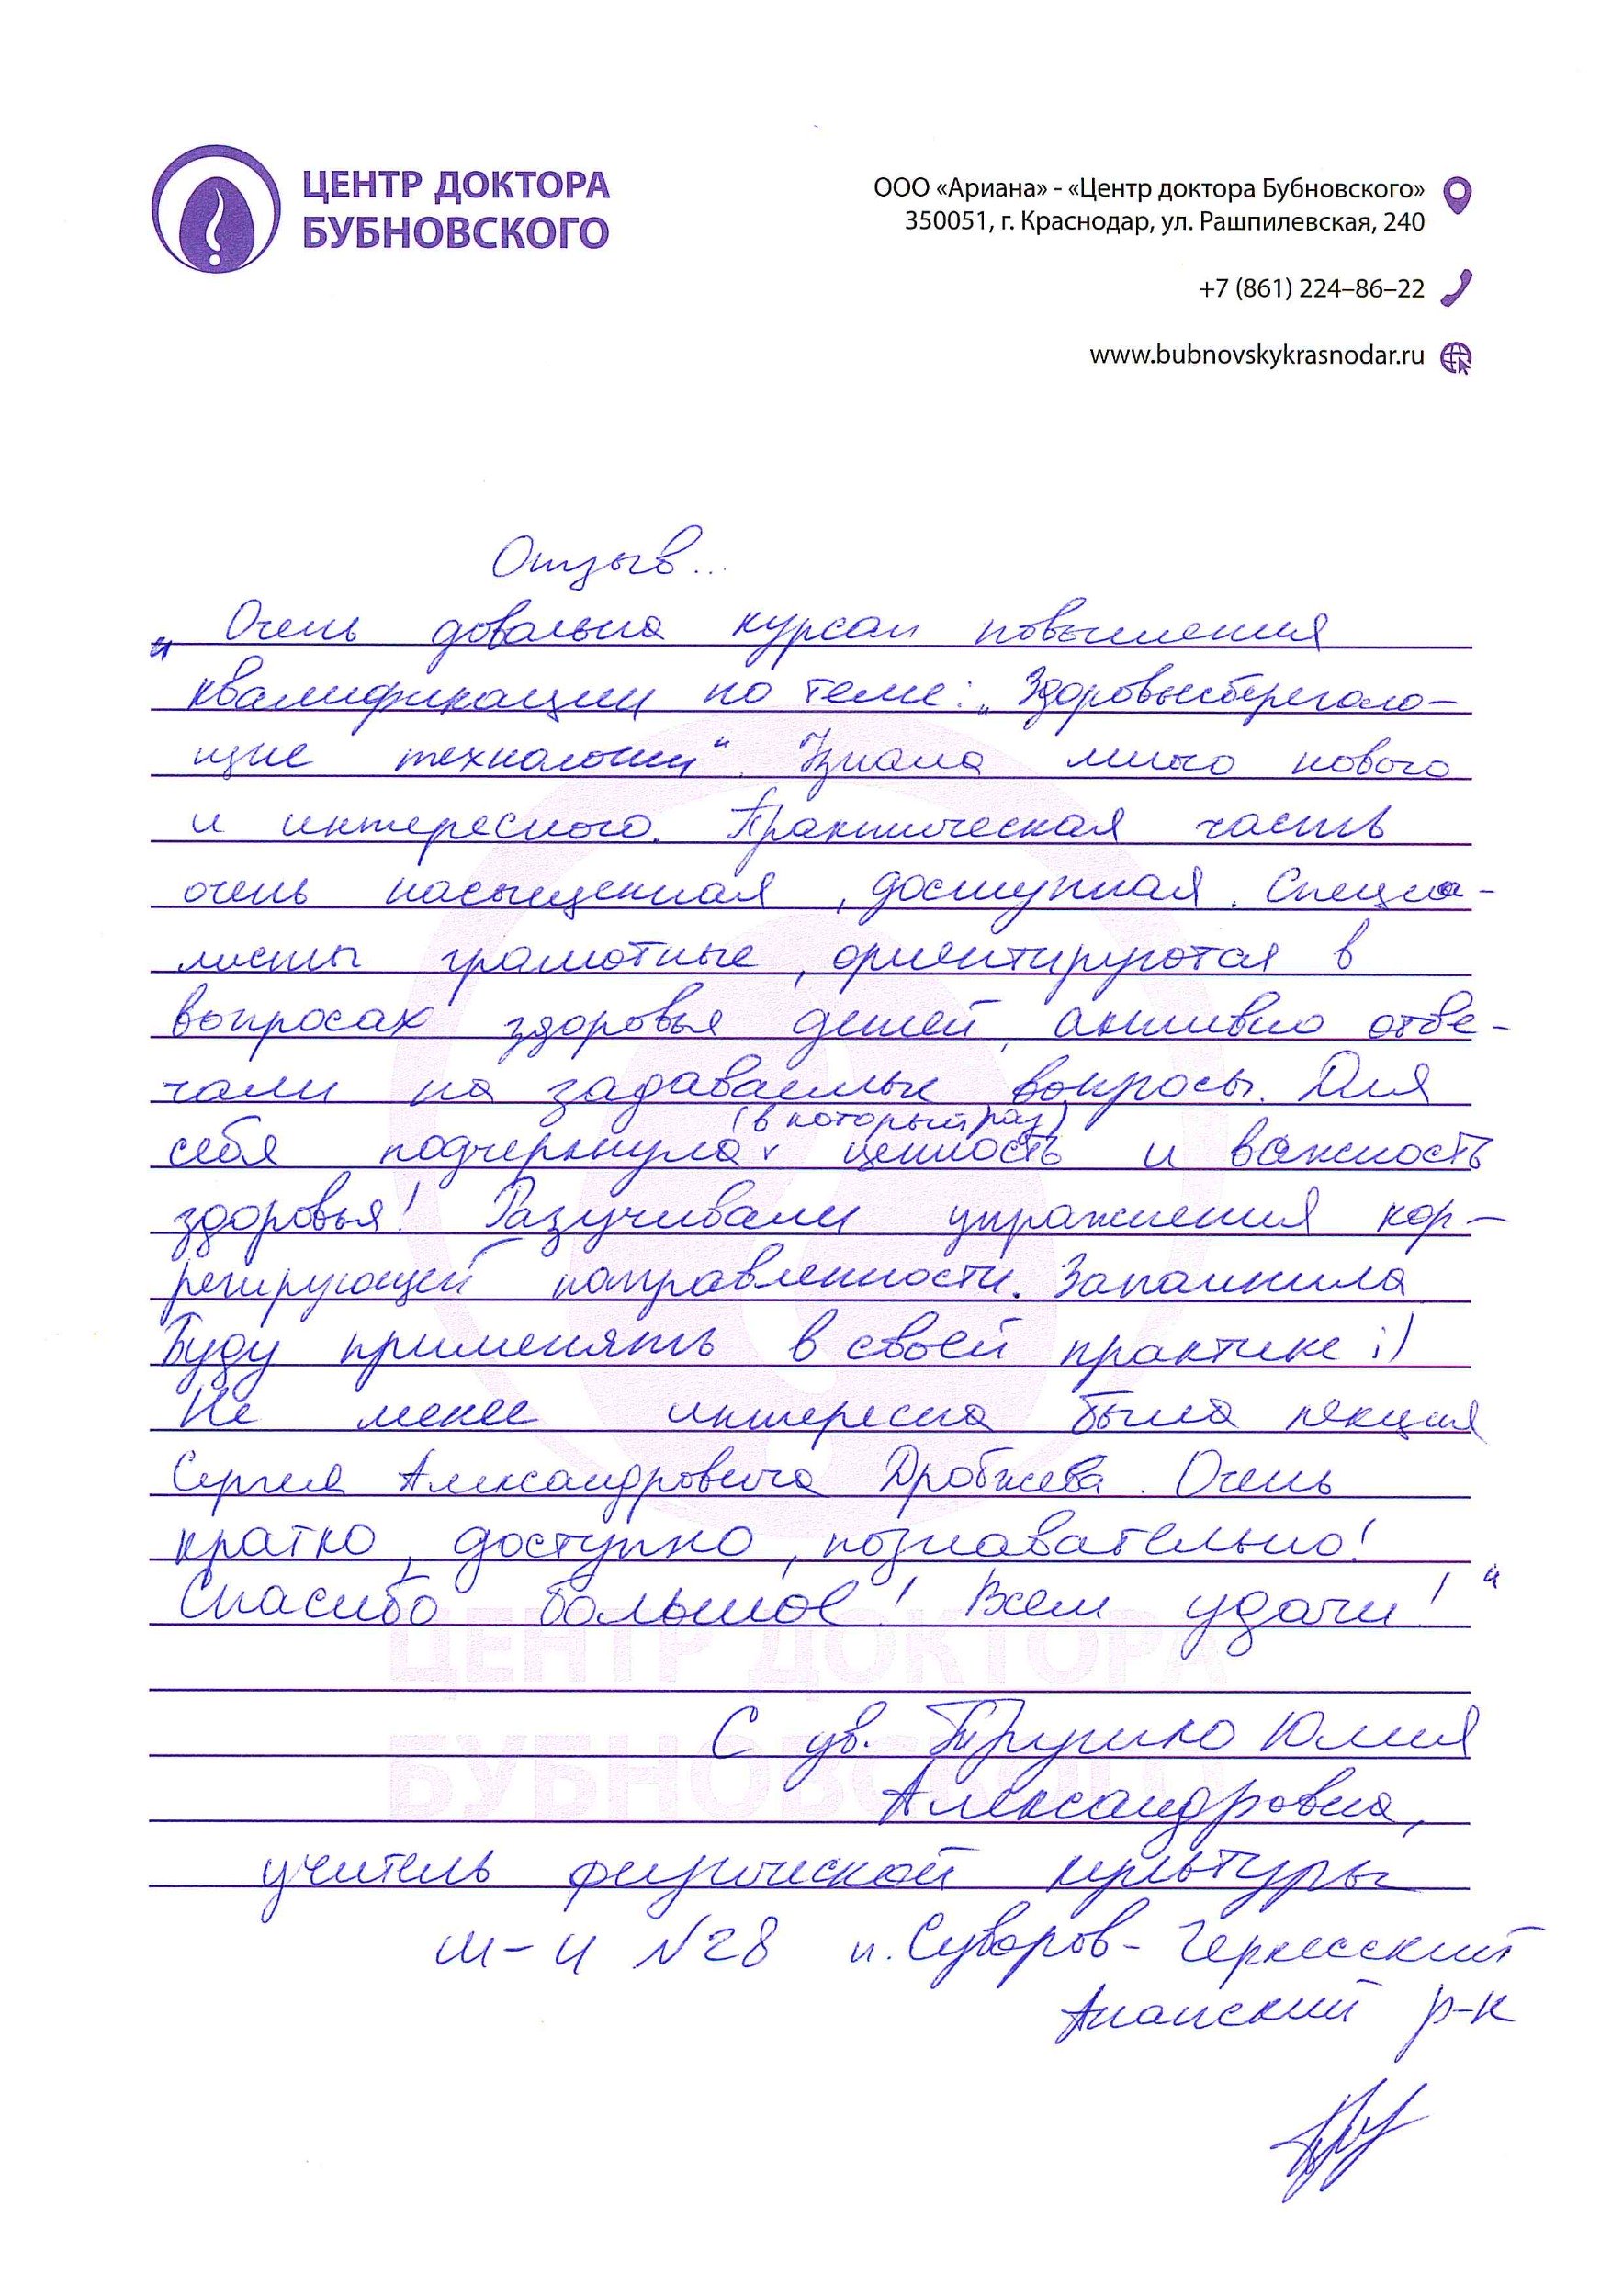 ЦЕНТР ДОКТОРА
БУБНОВСКОГО
ООО «Ариана» - «Центр доктора Бубновского»
350051, г. Краснодар, ул. Рашпилевская, 240
+7 (861) 224–86–22
www.bubnovskykrasnodar.ru
Отзыв...
„ Очень довольна курсам повышения
квалификации по теме: „Здоровьесберегаю-
щие технологии“. Узнала много нового
и интересного. Практическая часть
очень насыщенная, доступная. Специа-
листы грамотные, ориентируются в
вопросах здоровья детей, активно отве-
чали на задаваемые вопросы. Для
(в который раз)
себя подчеркнула ценность и важность
здоровья! Разучивали упражнения кор-
регирующей направленности. Запомнила
Буду применять в своей практике ;)
Не менее интересна была лекция
Сергея Александровича Дробжева. Очень
кратко, доступно, познавательно!
Спасибо большое! Всем удачи! “
С ув. Юлия
Александровна,
учитель физической культуры
ш-и №28 п. Суворов-Черкесский
Анапский р-н
ЦЕНТР ДОКТОРА
БУБНОВСКОГО